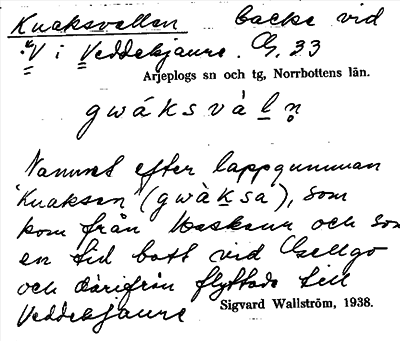 Kuaksvallen backe vid
V i Veddekjaure. G. 33
Arjeplogs sn och tg, Norrbottens län.
gwáksvàḻn̥
Namnet efter lappgumman
"Kuaksan" (gwàḵsa), som
kom från och som
en tid bott vid
och därifrån flyttade till
Veddekjaure
Sigvard Wallström, 1938.